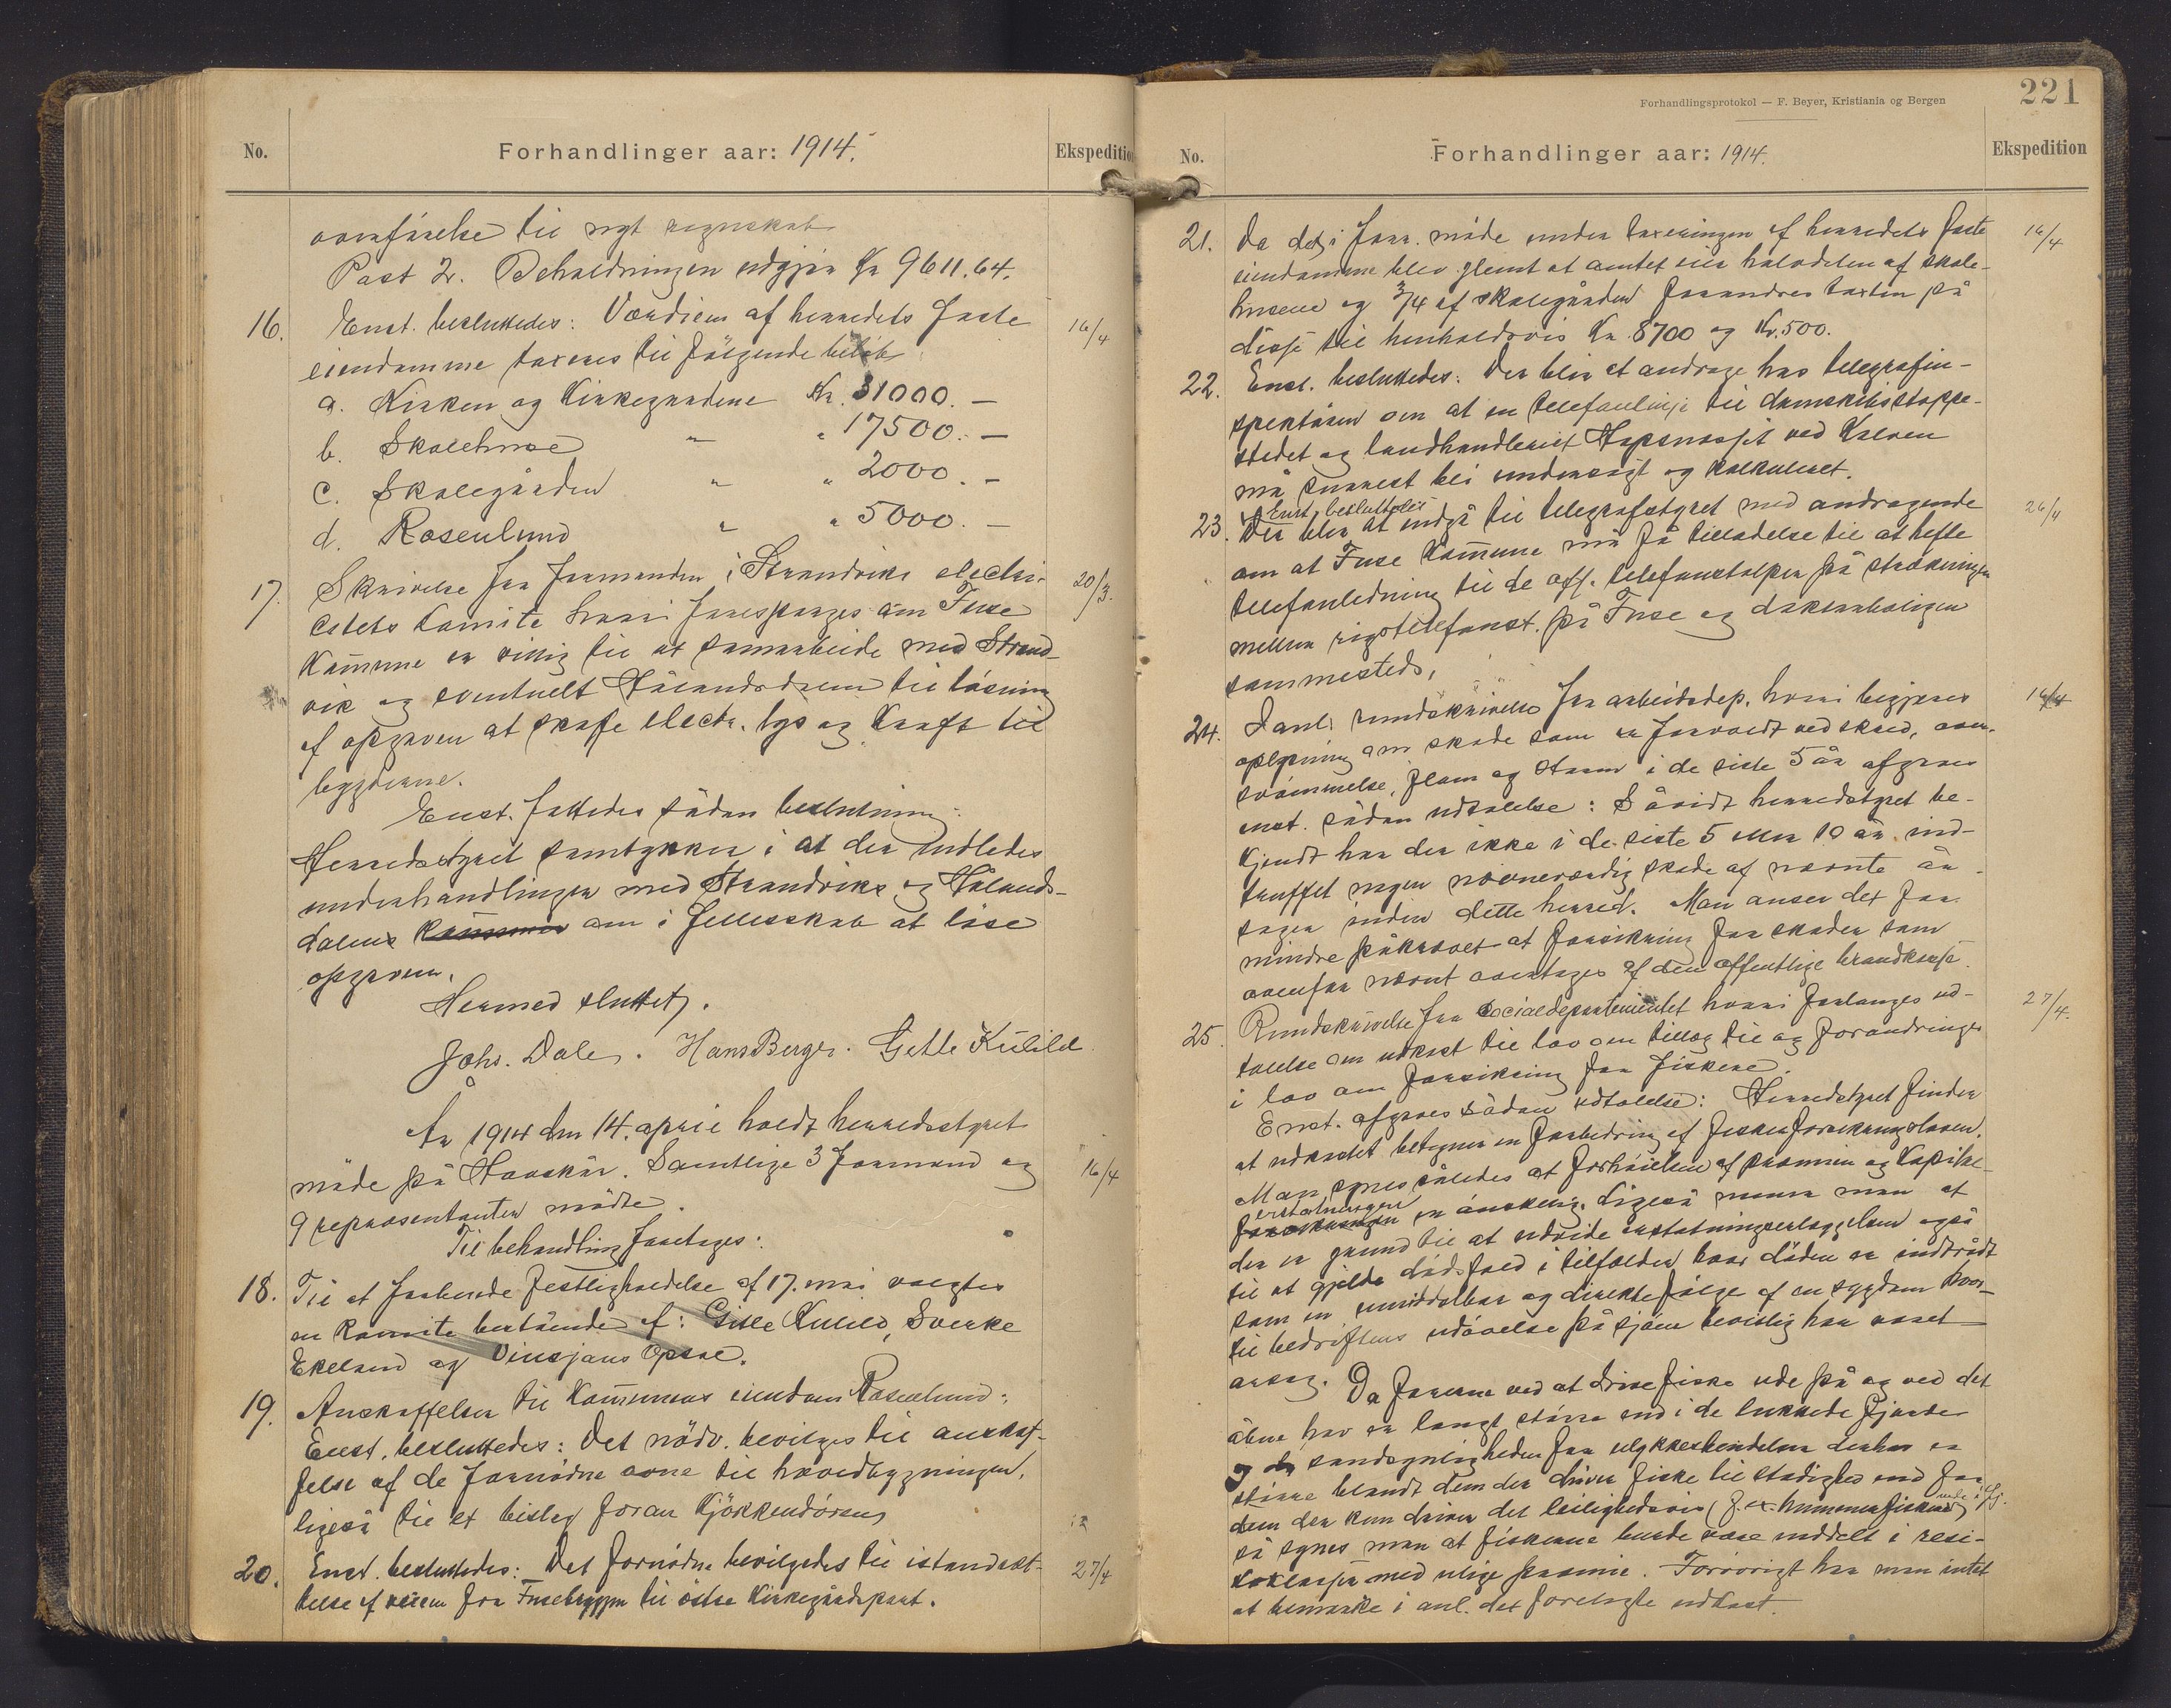 No.
Forhandlinger aar: 1914.
Ekspedition
overförelse til nyt regnskab
Post 2. Beholdningen udgjör Kr 9611.64.
16. Enst. besluttedes: Værdien af herredets faste 16/4
eiendomme taxeres til følgende beløb
a. Kirken og Kirkegaardene Kr. 31000. —
b. Skolehuse " " 17500. —
c. Skolegården " " 2000. —
d. Rosenlund " " 5000. —
17. Skrivelse fra formanden i Strandviks electri- 20/3.
citets komite hvori forespørges om Fuse
Kommune er villig til at samarbeide med Strand-
vik og eventuelt Hålandsdalen til løsning
af opgaven at skaffe electr. lys og Kraft til
bygderne.
Enst. fattedes sådan beslutning:
Herredsstyret samtykker i at der indledes
underhandlinger med Strandviks og Hålands-
dalens kommuner om i fellesskab at löse
opgaven.
Hermed sluttet.
Johs. Dale. Hans Berge. Gitle Kulild
År 1914 den 14. april holdt herredsstyret
möde på Havskår. Samtlige 3 formænd og 16/4
9 repræsentanter mödte.
Til behandling foretoges:
18. Til at forberede festligholdelse af 17. mai valgtes
en komite bestående af: Gitle Kulild, Sverke
Ekeland og Vinsjans Opsal.
19. Anskaffelser til Kommunens eiendom Rosenlund:
Enst. besluttedes: Det nödv. bevilges til anskaf-
felse af de fornødne ovne til hovedbygningen,
ligeså til et bislag foran Kjökkendören
20. Enst. besluttedes: Det fornödne bevilgedes til istandsæt- 27/4
telse af veien fra Fusebryggen til östre Kirkegårdsport.
Forhandlingsprotokol — F. Beyer, Kristiania og Bergen
221
No.
Forhandlinger aar: 1914.
Ekspedition
21. Da det i forr. möde under taxeringen af herredets faste 16/4
eiendomme blev glemt at amtet eier halvdelen af skole-
husene og 3/4 af skolegården forandres taxten på
disse til henholdsvis Kr. 8700 og Kr. 500.
22. Enst. besluttedes: Der blir at andrage hos telegrafin-
spektören om at en telefonlinje til dampskibsstoppe-
stedet og landhandleriet Hopsnæsset ved Kalven
må snarest bli undersögt og kalkuleret.
Enst. besluttedes
23. Der blir at indgå til telegrafstyret med andragende 26/4
om at Fuse Kommune må få tilladelse til at hefte
telefonledning til de off. telefonstolper på strækningen
mellem rigstelefonst. på Fuse og doktorboligen
sammesteds.
24. Saml. rundskrivelse fra arbeidsdep. hvori begjæres 16/4
oplysning om skade som er forvoldt ved skred, over-
svömmelse, flom og storm i de siste 5 år afgives
enst. sådan udtalelse: Såvidt herredstyret be-
kjendt har der ikke i de siste 5 eller 10 år ind-
truffet nogen nævneværdig skade af nævnte år-
sager inden dette herred. Man anser det for
mindre påkrævet at forsikring for skader som
ovenfor nævnt overtages af den offentlige brandkasse.
25. Rundskrivelse fra socialdepartementet hvori forlanges ud- 27/4.
talelse om udkast til lov om tillæg til og forandringer
i lov om forsikring for fiskere.
Enst. afgives sådan udtalelse: Herredstyret finder
at udkastet betegner en forbedring af fiskerforsikringsloven.
Man synes således at forhöielsen af præmien og kapital-
erstatningen
forsikringen er önskelig. Ligeså mener man at
der er grund til at udvide erstatningserlæggelsen også
til at gjelde dödsfald i tilfælder hvor döden er indtrådt
som en umiddelbar og direkte fölge af en sygdom hvor-
til bedriftens udövelse på sjöen bevislig har været
årsag. Da farerne ved at drive fiske ude på og ved det
åbne hav er langt större end i de lukkede fjorde
og da sandsynligheden for ulykkeshendelser derhos er
större blandt dem der driver fiske til stadighed end for
dem der kun driver det leilighedsvis (f. ex. hummerfiskere inde i fj.)
så synes man at fiskerne burde være inddelt i risi-
koklasser med ulige præmie. Forövrigt har man intet
at bemærke i anl. det forelagte udkast.